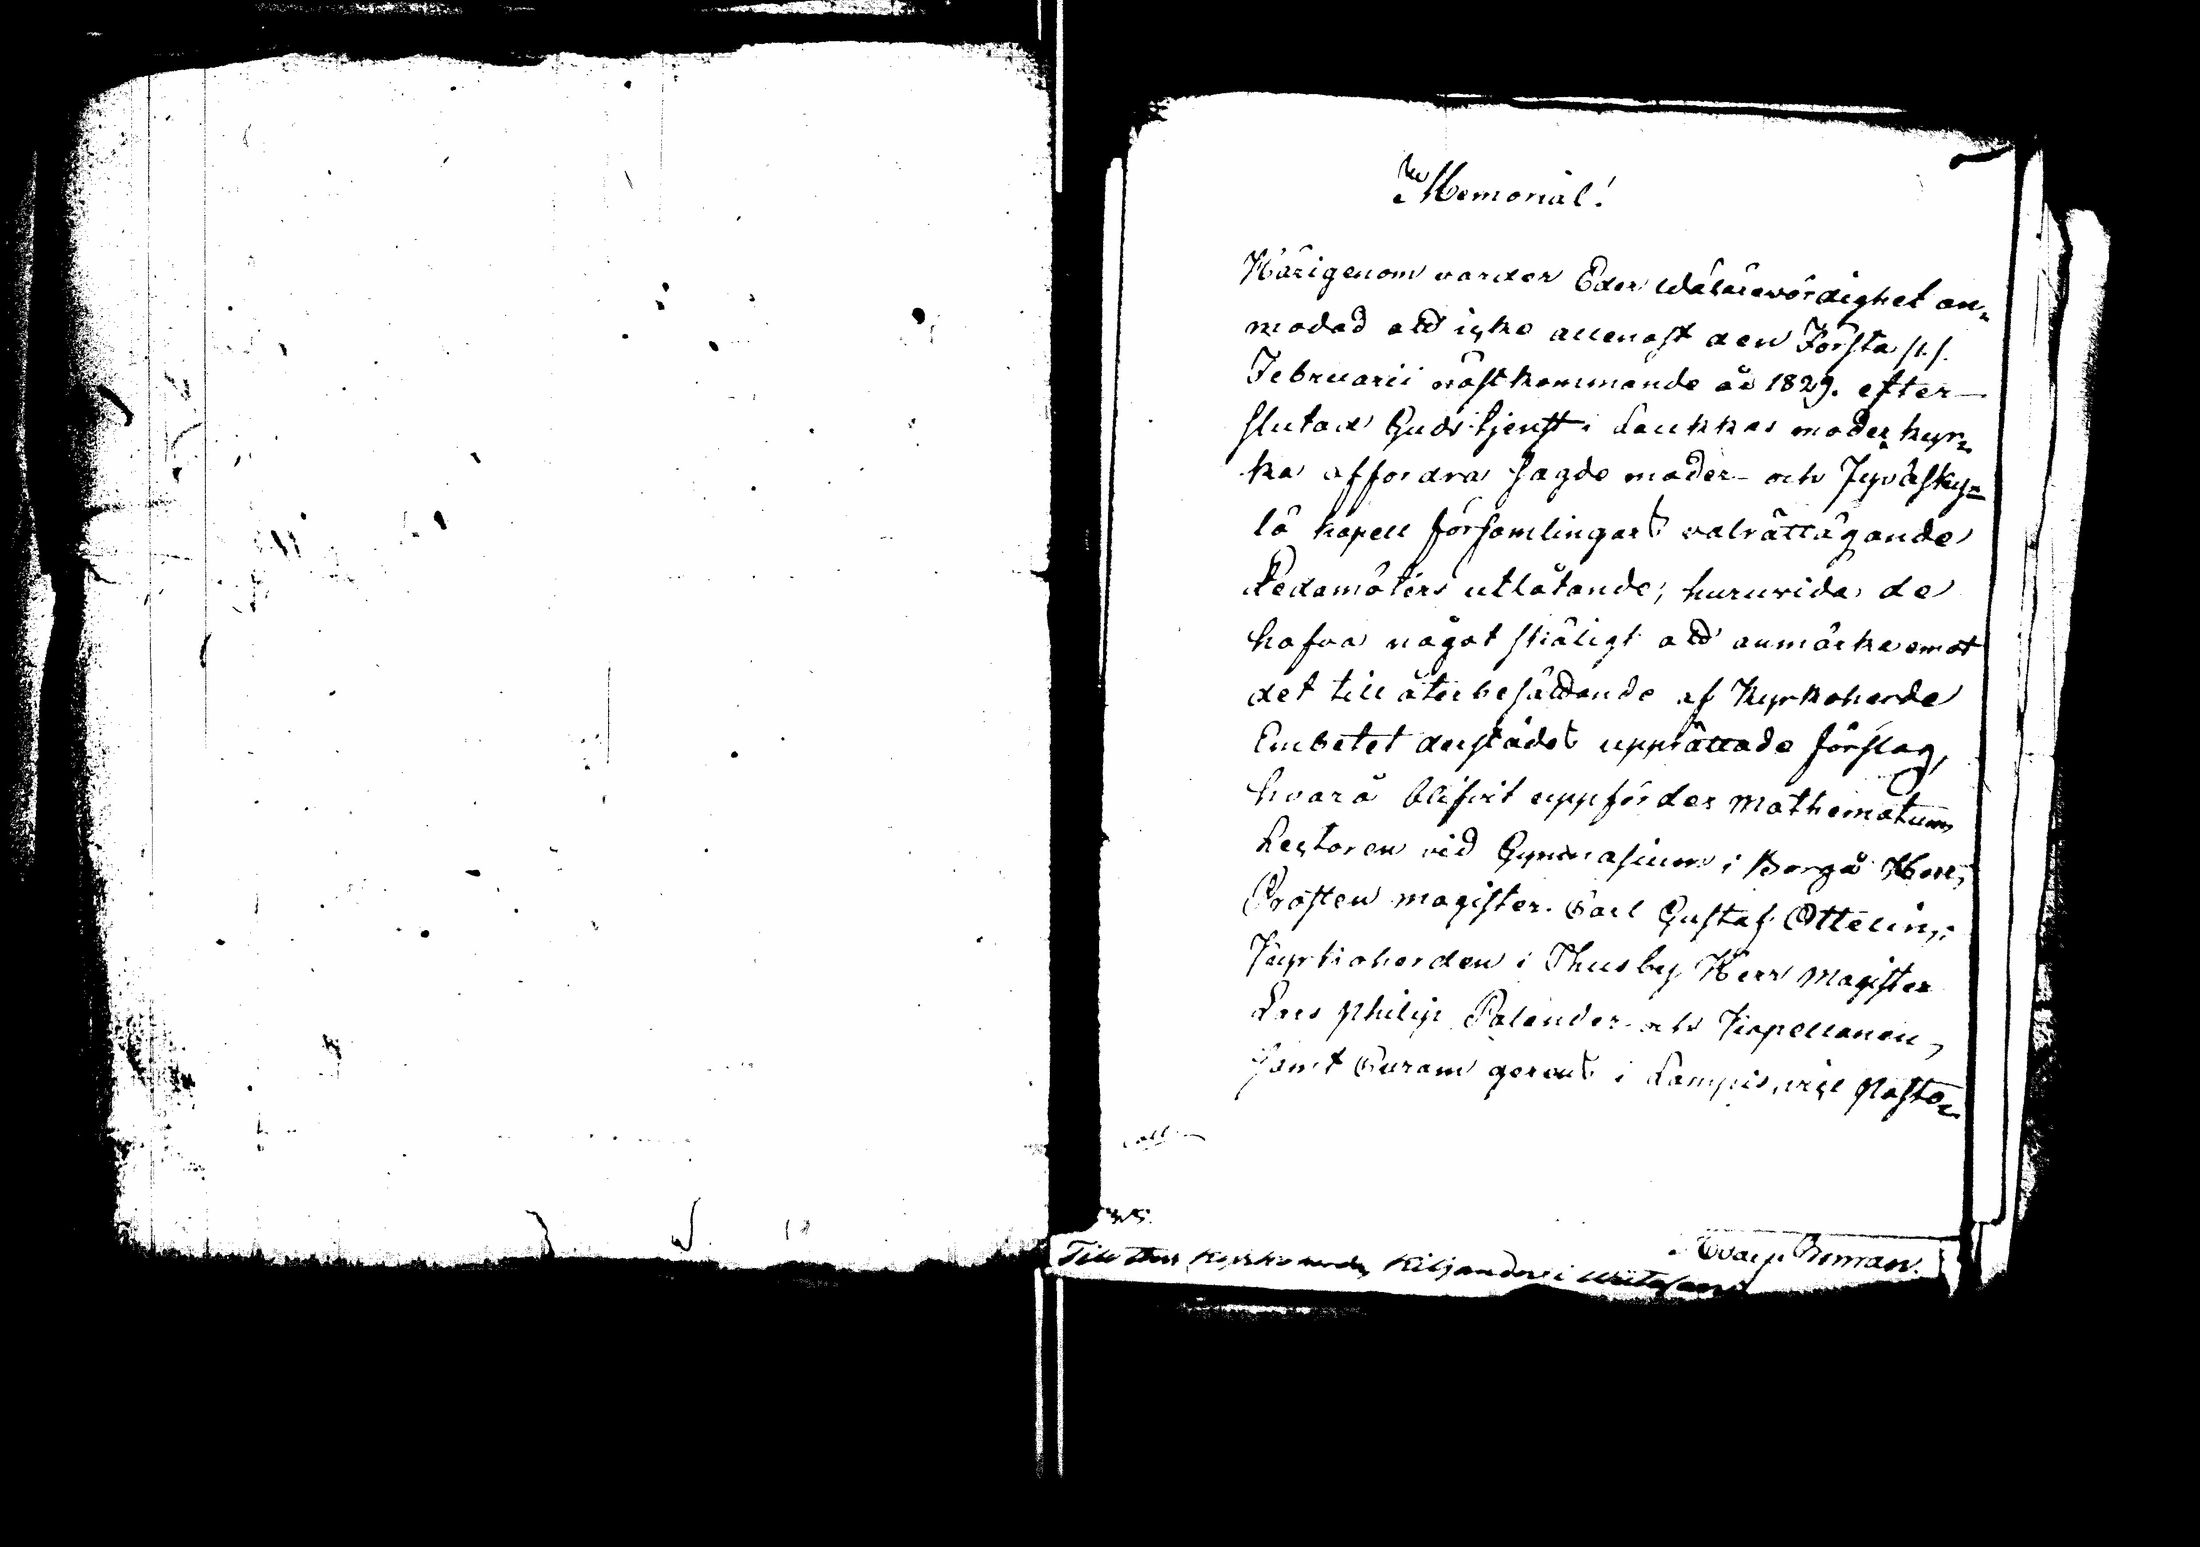 Memorial!
Härigenom varder Eder Wälärevördighet an-
modad att icke allenast den Första
Februarii nästkommande år 1829. efter
slutad Gudstjenst i Laukkas moderkyr-
ka affordra sagde moder- och Jyväsky-
lä kapell församlingars valrättägande
Ledamöters utlåtande, huruvida de
hafva något skäligt att anmärka emot
det till återbesättande af Kyrkoherde
Embetet derstädes upprättade förslag,
hvarå blifvit uppförder Mathematum
Lectoren vid Gymnasium i Borgå Herr
Prosten Magister Carl Gustaf Ottelin,
Kyrkoherden i Thusby Herr Magister
Lars Philip Palander och Kapellanen,
samt Curam gerens i Lampis, vice Pasto-
Till Herr Kyrkoherde Kiljander i